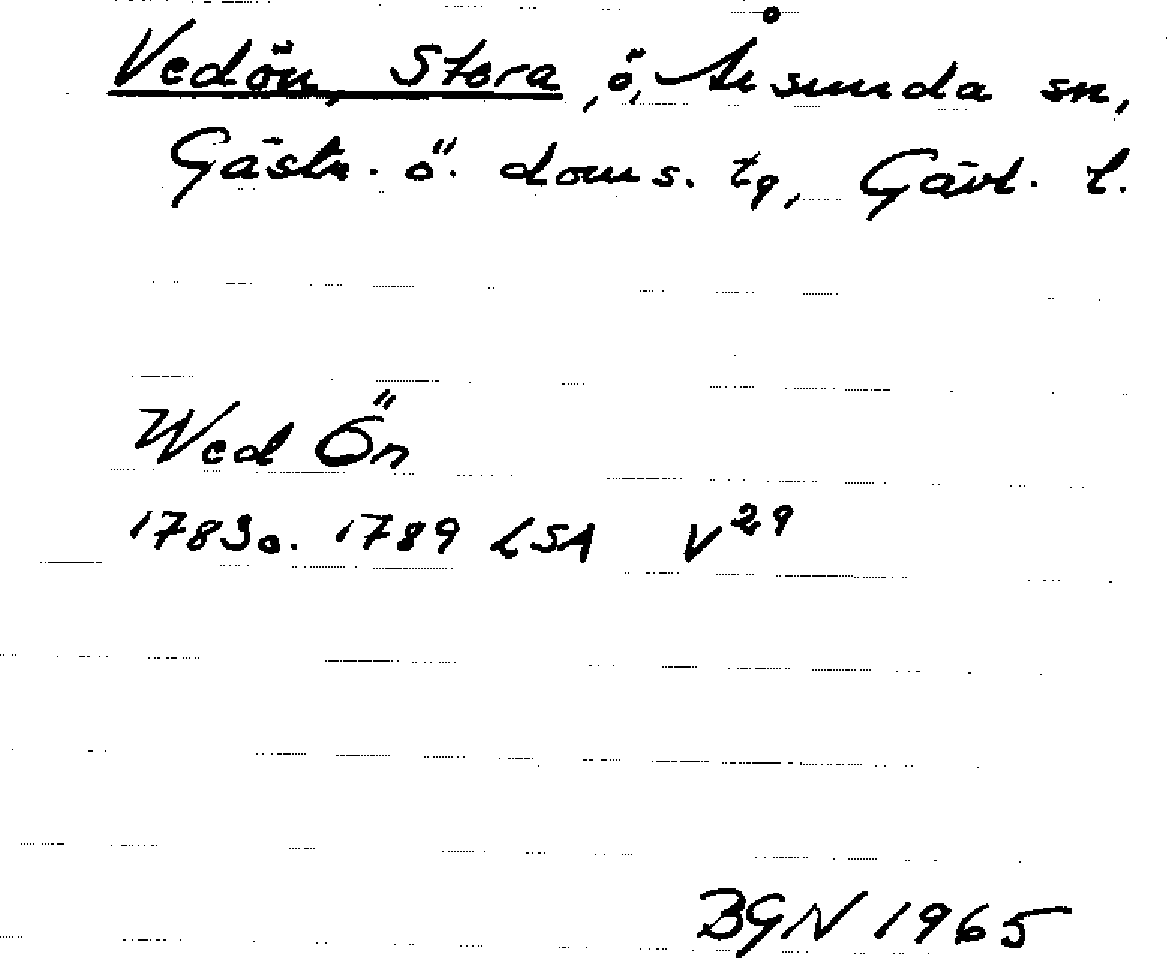 Vedön, Stora, ö, Årsunda sn,
Gästr. ö. doms. tg, Gävl. l.
Wed Ön
1783o. 1789 LSA V29
BGN 1965